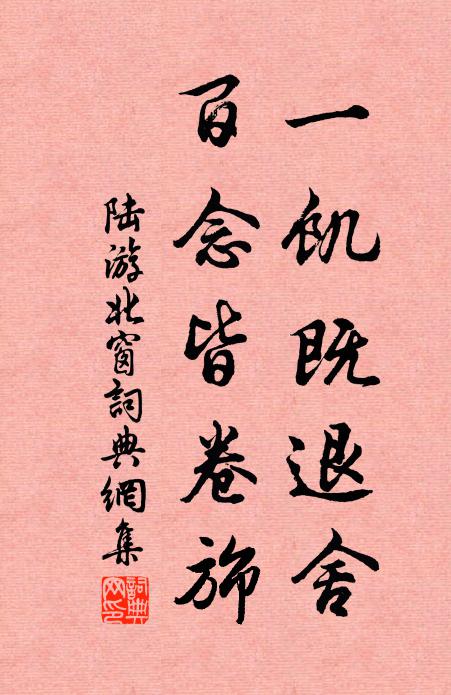 一飢既退舍
百念皆卷旆
陆游北窗詞典網集
詞典网印